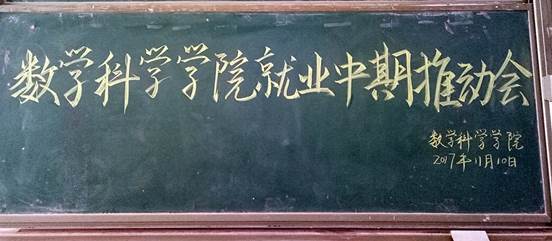 数学科学学院就业中期推动会
数学科学学院
2017年11月10日